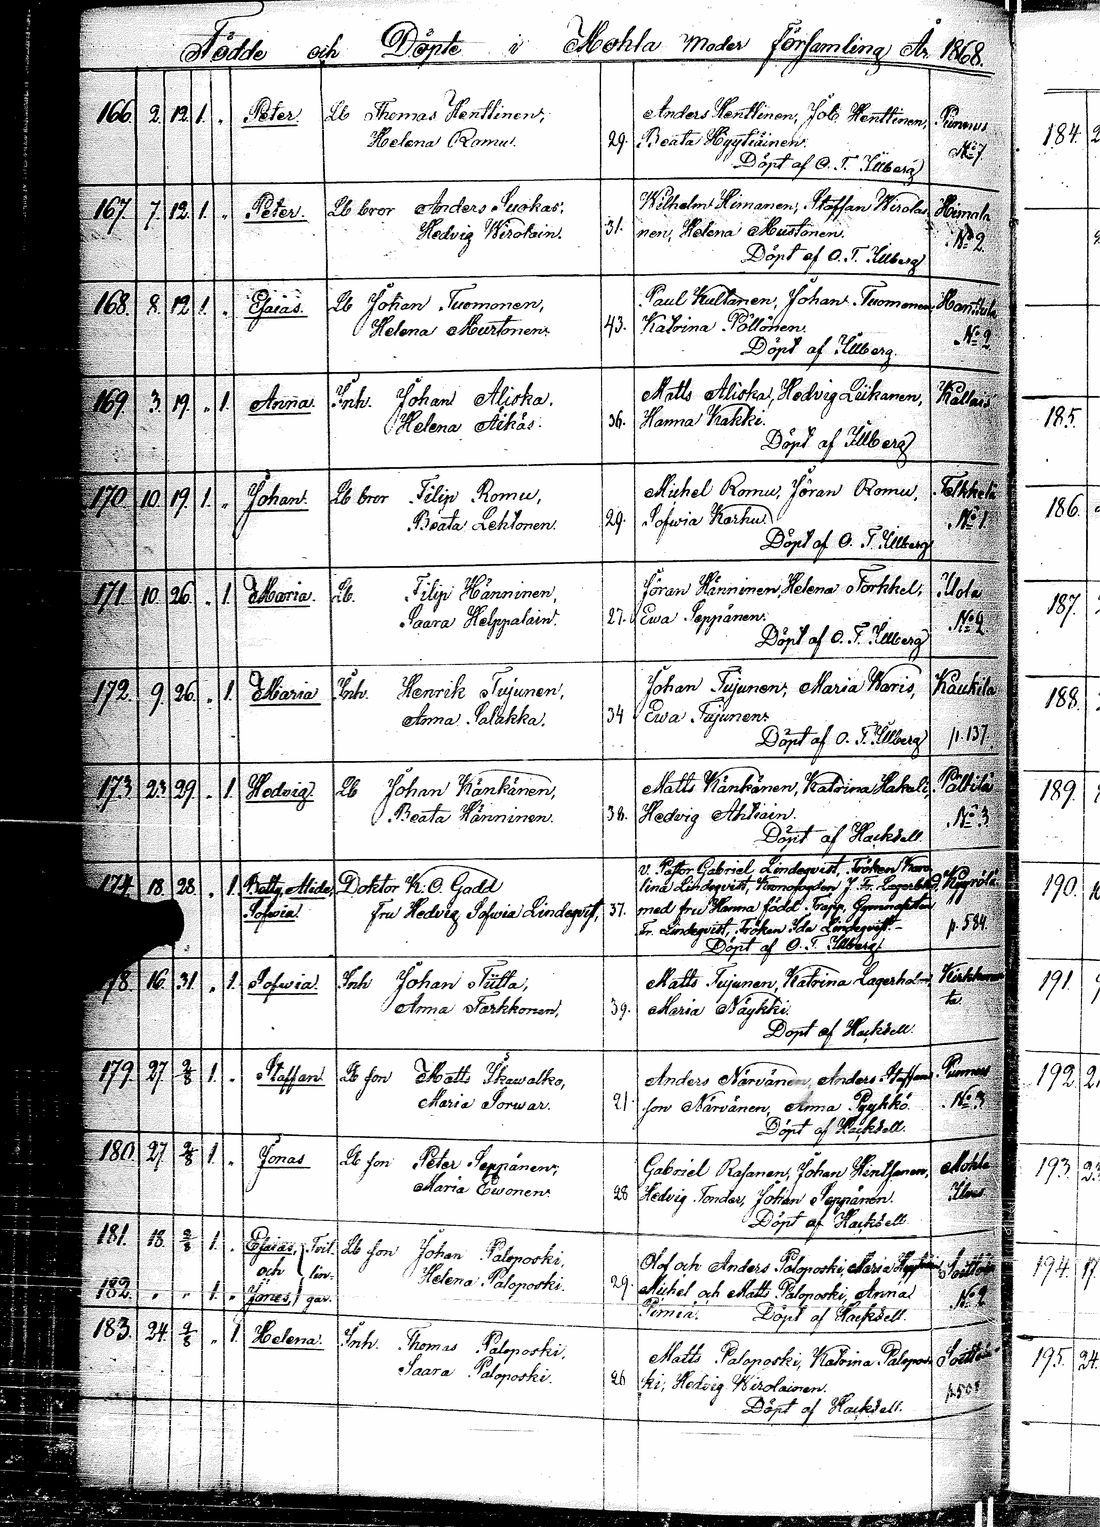 Födde och Döpte i Mohla Moder församling År 1868.
166. 2. 12. 1. „ Peter. Lb Thomas Henttinen, Anders Henttinen, Job Henttinen, Pinnus
Helena Romu. 29. Beata Hyytiäinen. No 7.
Döpt af O. T. Illberg
167. 7. 12. 1. „ Peter. Lb bror Anders Suokas, Wilhelm Himanen, Staffan Wirolai- Himala
Hedvig Wirolain. 31. nen, Helena Mustonen. No 2.
Döpt af O. T. Illberg
168. 8. 12. 1. „ Esaias. Lb Johan Tuomonen, Paul Kultanen, Johan Tuomonen,
Helena Murtonen. 43. Katrina Pöllönen. No 2.
Döpt af Illberg.
169. 3. 19. „ 1. Anna. Inh. Johan Aliska. Matts Aliska, Hedvig Leikanen,
Helena Äikäs. 36. Hanna Kakki.
Döpt af Illberg
170. 10. 19. 1. „ Johan. Lb bror Filip Romu, Michel Romu, Jöran Romu,
Beata Lehtonen. 29. Sofwia Karhu. No 1.
Döpt af O. T. Illberg
171. 10. 26. „ 1. Maria. Lb. Filip Hänninen, Jöran Hänninen, Helena Torkkel,
Saara Helppalain. 27. Ewa Seppänen. No 2.
Döpt af O. T. Illberg
172. 9. 26. „ 1. Maria Inh. Henrik Tujunen, Johan Tujunen, Maria Waris, Kaukila
Anna Salakka. 34 Ewa Tujunen. p. 137.
Döpt af O. T. Illberg
173. 23 29. „ 1. Hedvig Lb Johan Känkänen, Matts Känkänen, Katrina Hakuli, Pältilä
Beata Hänninen. 38. Hedvig Ahtiain. No 3.
Döpt af Hacksell.
174. 18. 28. „ 1. Betty Alide, Doktor K. O. Gadd v. Pastor Gabriel Lindeqvist, Fröken Karo-
lina Lindeqvist, Kronofogden J. Fr. Kyyrölä
Sofwia. Fru Hedvig Sofwia Lindeqvist, 37. med fru Hanna född Trapp, Gymnasisten
Fr. Lindeqvist, Fröken Ida Lindeqvist.- p. 584.
Döpt af O. T. Illberg
178. 16. 31. „ 1. Sofwia. Inh Johan Tiitta, Matts Tujunen, Katrina Lagerholm,
Anna Tarkkonen, 39. Maria Näykki.
Döpt af Hacksell.
179. 27 2/8 1. „ Staffan Lb son Matts Skawalko, Anders Närvänen, Anders Staffans
Maria Sorwar. 21 son Närvänen, Anna Pyykkö. No 3
Döpt af Hacksell.
180. 27 2/8 1. „ Jonas Lb son Peter Seppänen, Gabriel Rasanen, Johan Hinttanen, Mohla
Maria Ewonen. 28 Hedvig Tonder, Johan Seppänen.
Döpt af Hacksell
181. 18. 2/8 1. „ Esaias, Tvil- Lb son Johan Paloposki, Olof och Anders Paloposki, Maria
och lin- Helena Paloposki. 29. Michel och Matts Paloposki, Anna No 2
182. „ „ 1. „ Jonas, gar. Pimiä. Döpt af Hacksell.
183. 24. 2/8 „ 1. Helena. Inh. Thomas Paloposki, Matts Paloposki, Katrina Palopos-
Saara Paloposki. 26 ki, Hedvig Wirolainen.
Döpt af Hacksell.
184.
185.
186.
187.
188.
189.
190.
191.
192.
193.
194.
195. 24.